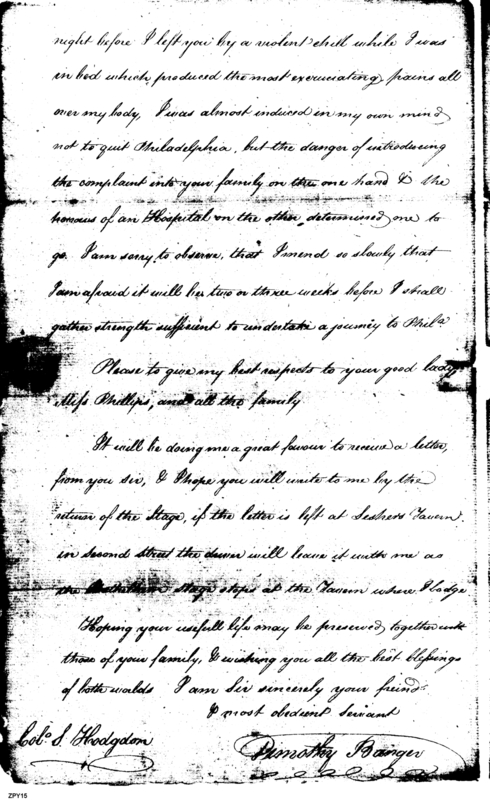 night before I left you by a violent chill while I was
in bed which produced the most excruciating pains all
over my body, I was almost induced in my own mind
not to quit Philadelphia, but the danger of introducing
the complaint into your family on the one hand & the
horrours of an Hospital on the other, determined me to
go. I am sorry to observe, that I mend so slowly that
I am afraid it will be two or three weeks before I shall
gather strength sufficient to undertake a journey to Phila
Please to give my best respects to your good lady
Miss Phillips, and all the family
It will be doing me a great favour to receive a letter,
from you sir, & I hope you will write to me by the
return of the Stage, if the letter is left at Tavern,
in second street the driver will leave it with me as
the stage stops at the Tavern where I lodge
Hoping your usefull life may be preserved together with
those of your family, & wishing you all the best blessings
of both worlds I am Sir sincerely your freind
& most obedient Servant
Colo. S. Hodgdon
Timothy Banger
ZPY15